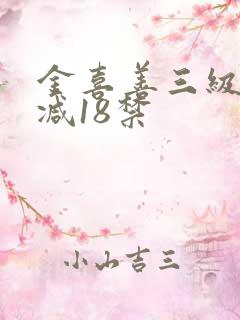 金喜善三級
减18禁
小山吉三